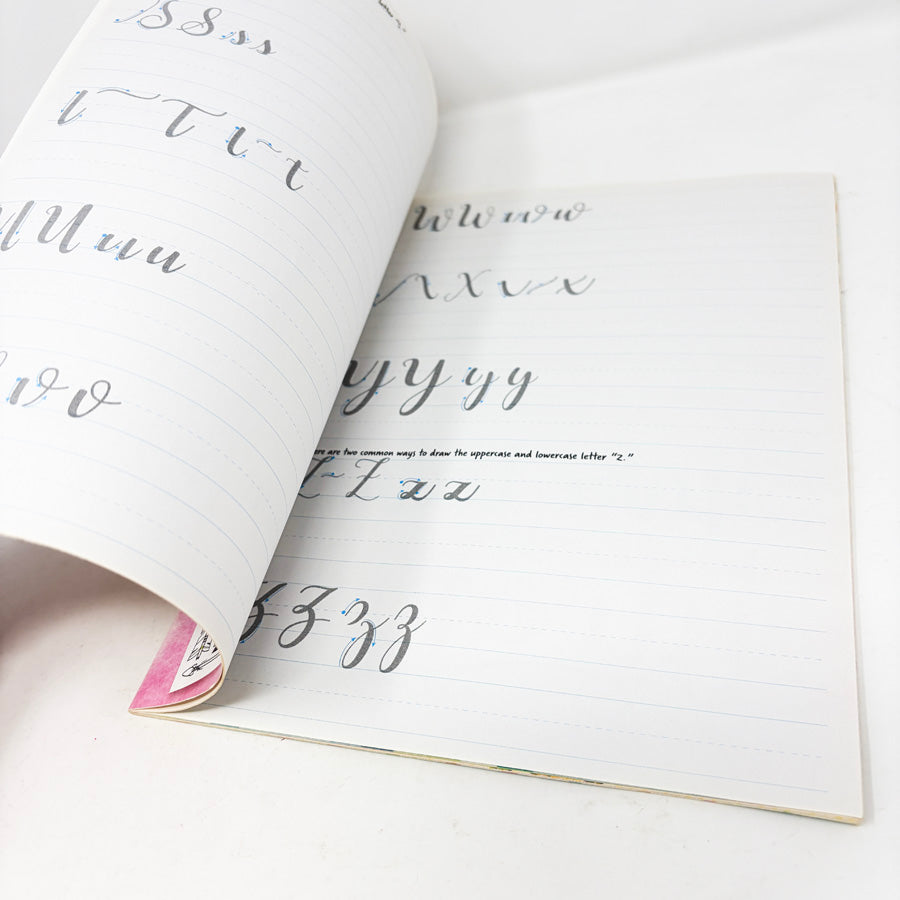 S S s s
T T t t
U U u u
v v
W W w w
X X x x
Y Y y y
are two common ways to draw the uppercase and lowercase letter “z.”
Z Z z z
Z Z z z